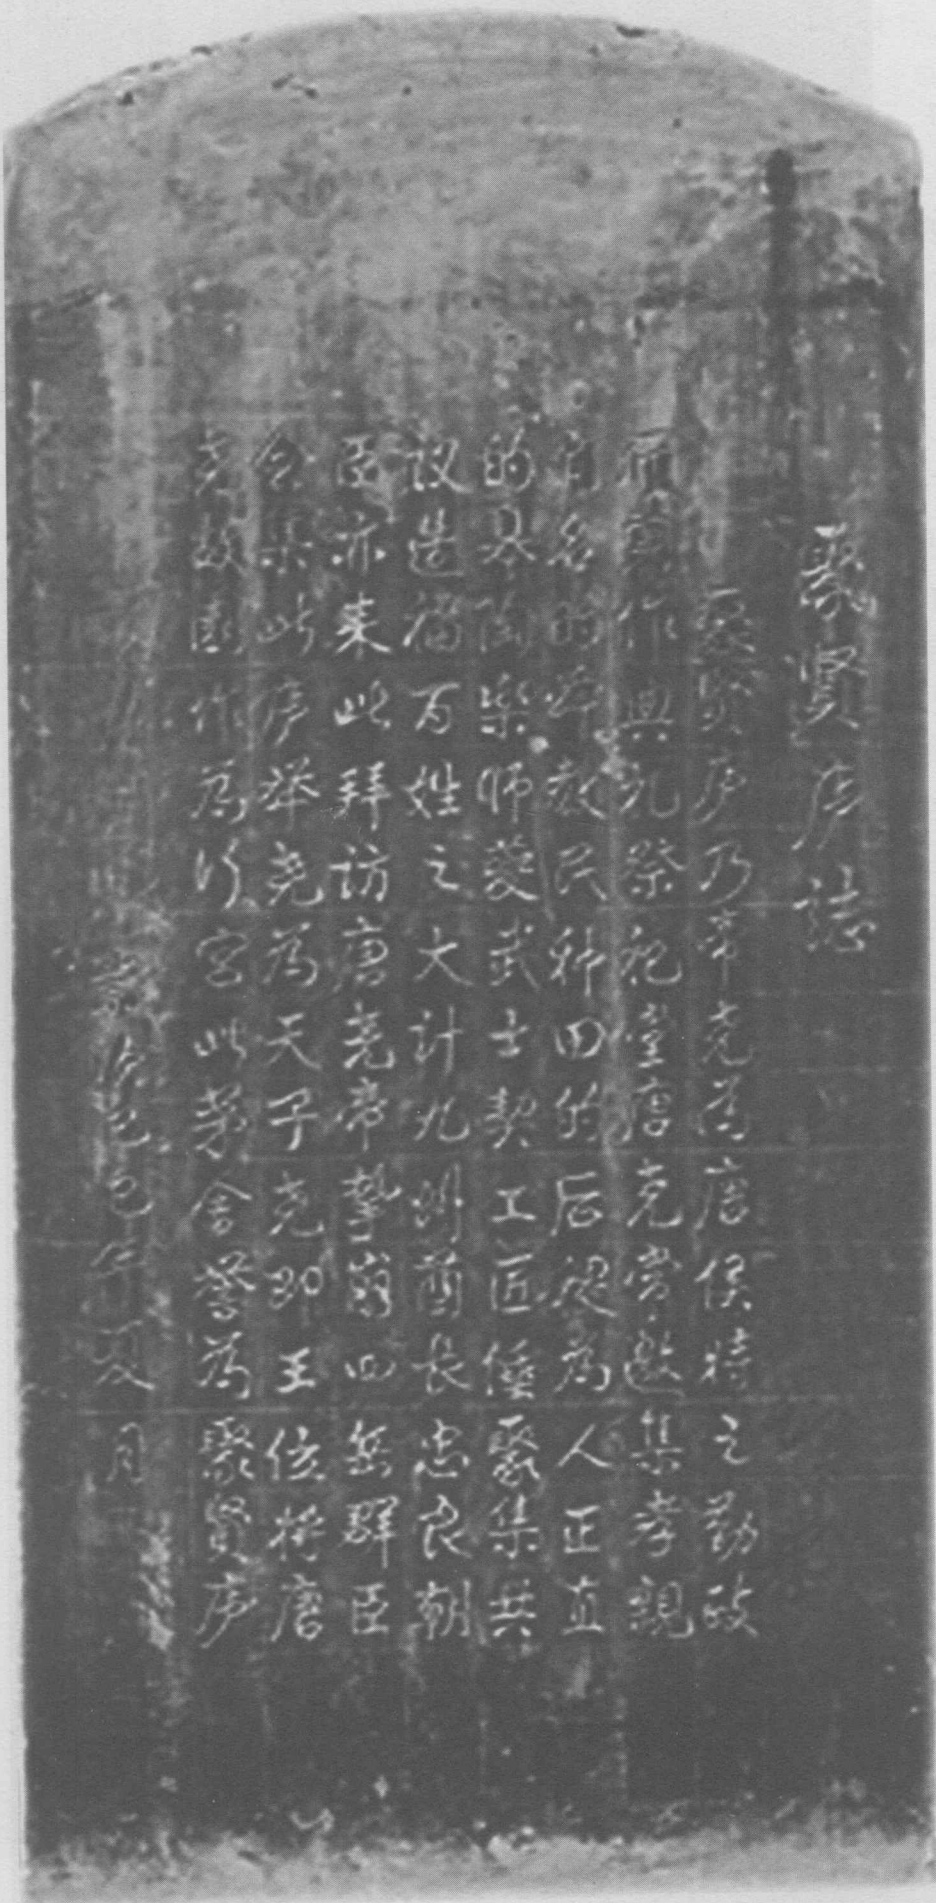 聚贤庐誌
聚贤庐乃帝尧为唐侯特之勤政
作典礼祭祀堂唐尧常邀集孝親
名的舜教民种田的后稷为人正直
的皋陶樂师夔武士契工匠倕聚集共
议造福百姓之大计九州酋长忠良朝
臣亦来此拜访唐尧帝挚崩四岳群臣
会集此庐举尧为天子尧即王位将唐
尧故園作为行宫此茅舍誉为聚贤庐
己巳年 月